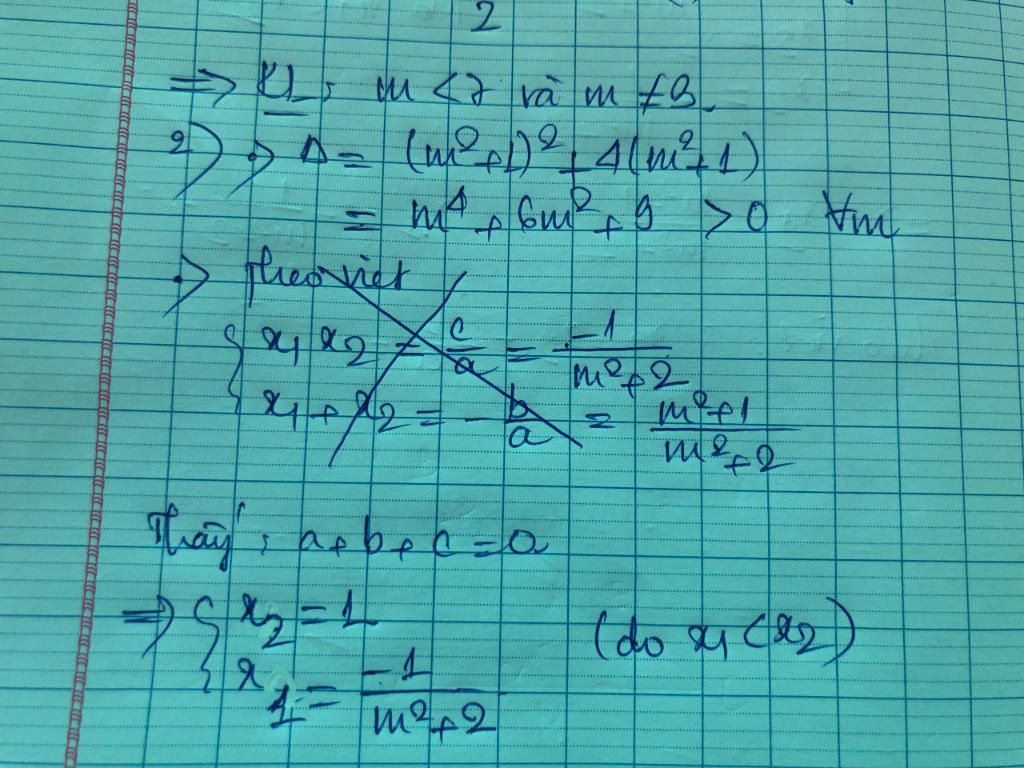 2
=> KL: m < 7 và m ≠ 3.
2) •> Δ = (m²+1)² + 4(m²+1)
= m⁴ + 6m² + 9 > 0 ∀m
•> Theo viet
{ x₁ x₂ = c/a = -1/(m²+2)
x₁ + x₂ = -b/a = (m²+1)/(m²+2)
Thấy: a + b + c = 0
=> { x₂ = 1 (do x₁ < x₂)
x₁ = -1/(m²+2)